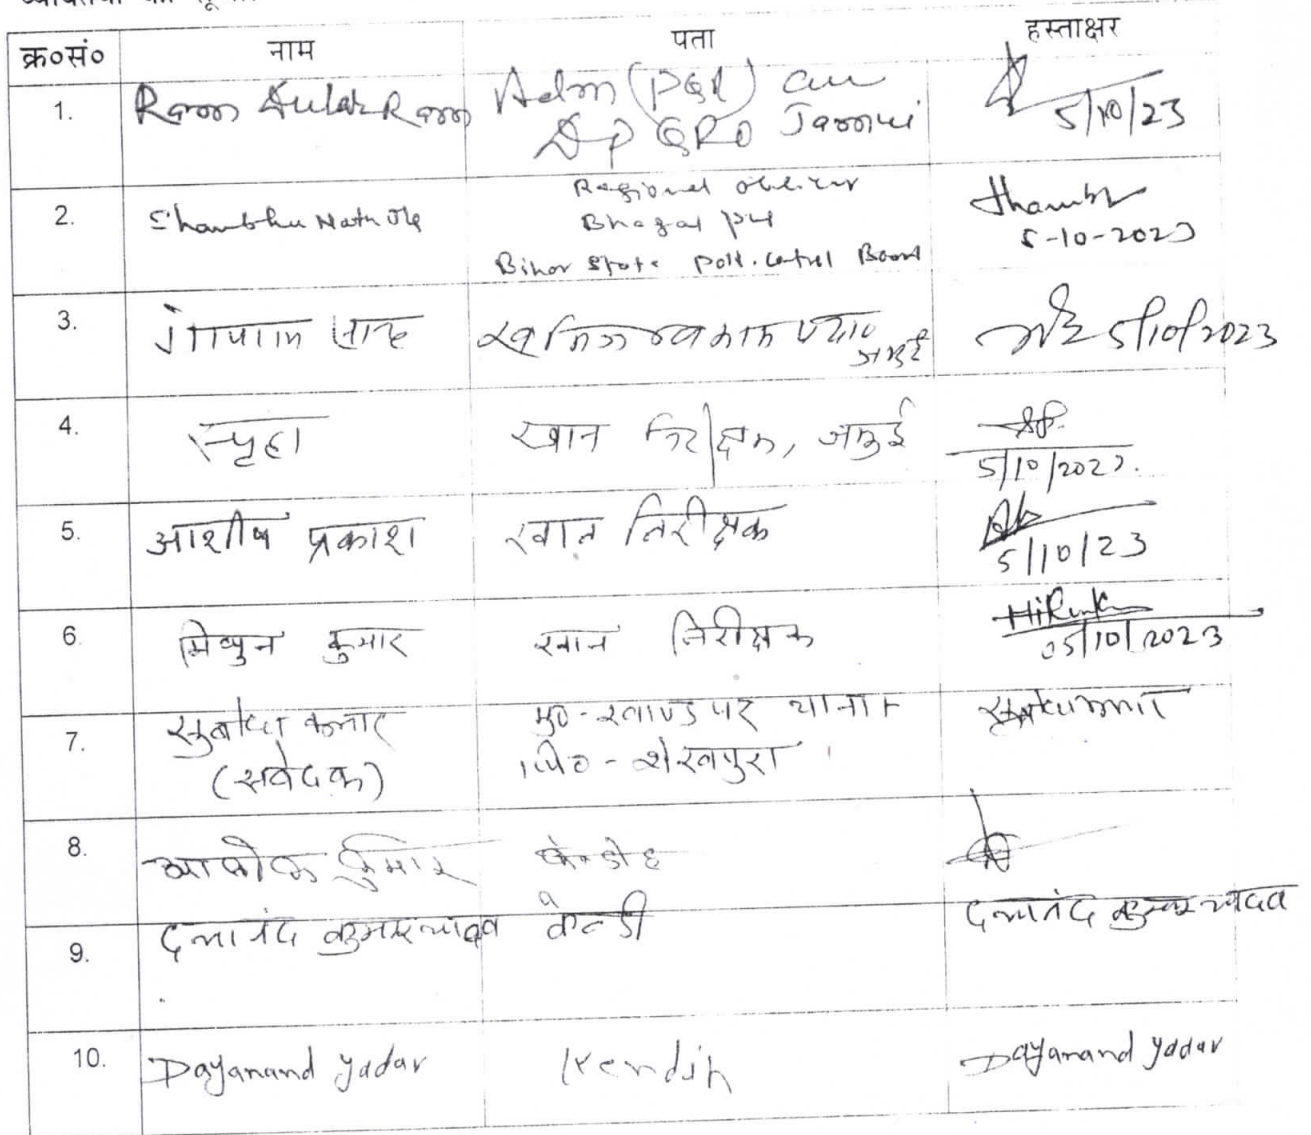 क्र०सं० नाम पता हस्ताक्षर
1. Ram Dular Ram Adm (PGR) cum
DPGRO Jamui
5/10/23
2. Shambhu Nath Jha Regional Officer
Bhagalpur
Bihar State Poll. Control Board
Shambhu
5-10-2023
3. जमुई 5/10/2023
4. स्पृहा खान निरीक्षक, जमुई
5/10/2023.
5. आशीष प्रकाश खान निरीक्षक
5/10/23
6. मिथुन कुमार खान निरीक्षक
05/10/2023
7. कुमार
(संवेदक)
मु०- थाना+
जि०-शेखपुरा
8. कुमार
9. दयानंद कुमार यादव केन्डी दयानंद कुमार यादव
10. Dayanand Yadav Kendih Dayanand Yadav